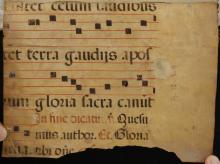 ret celum laudibus
ret terra gaudijs apos
rum gloria sacra canut
In fine dicatur. Quesu
mus author. Et. Gloria